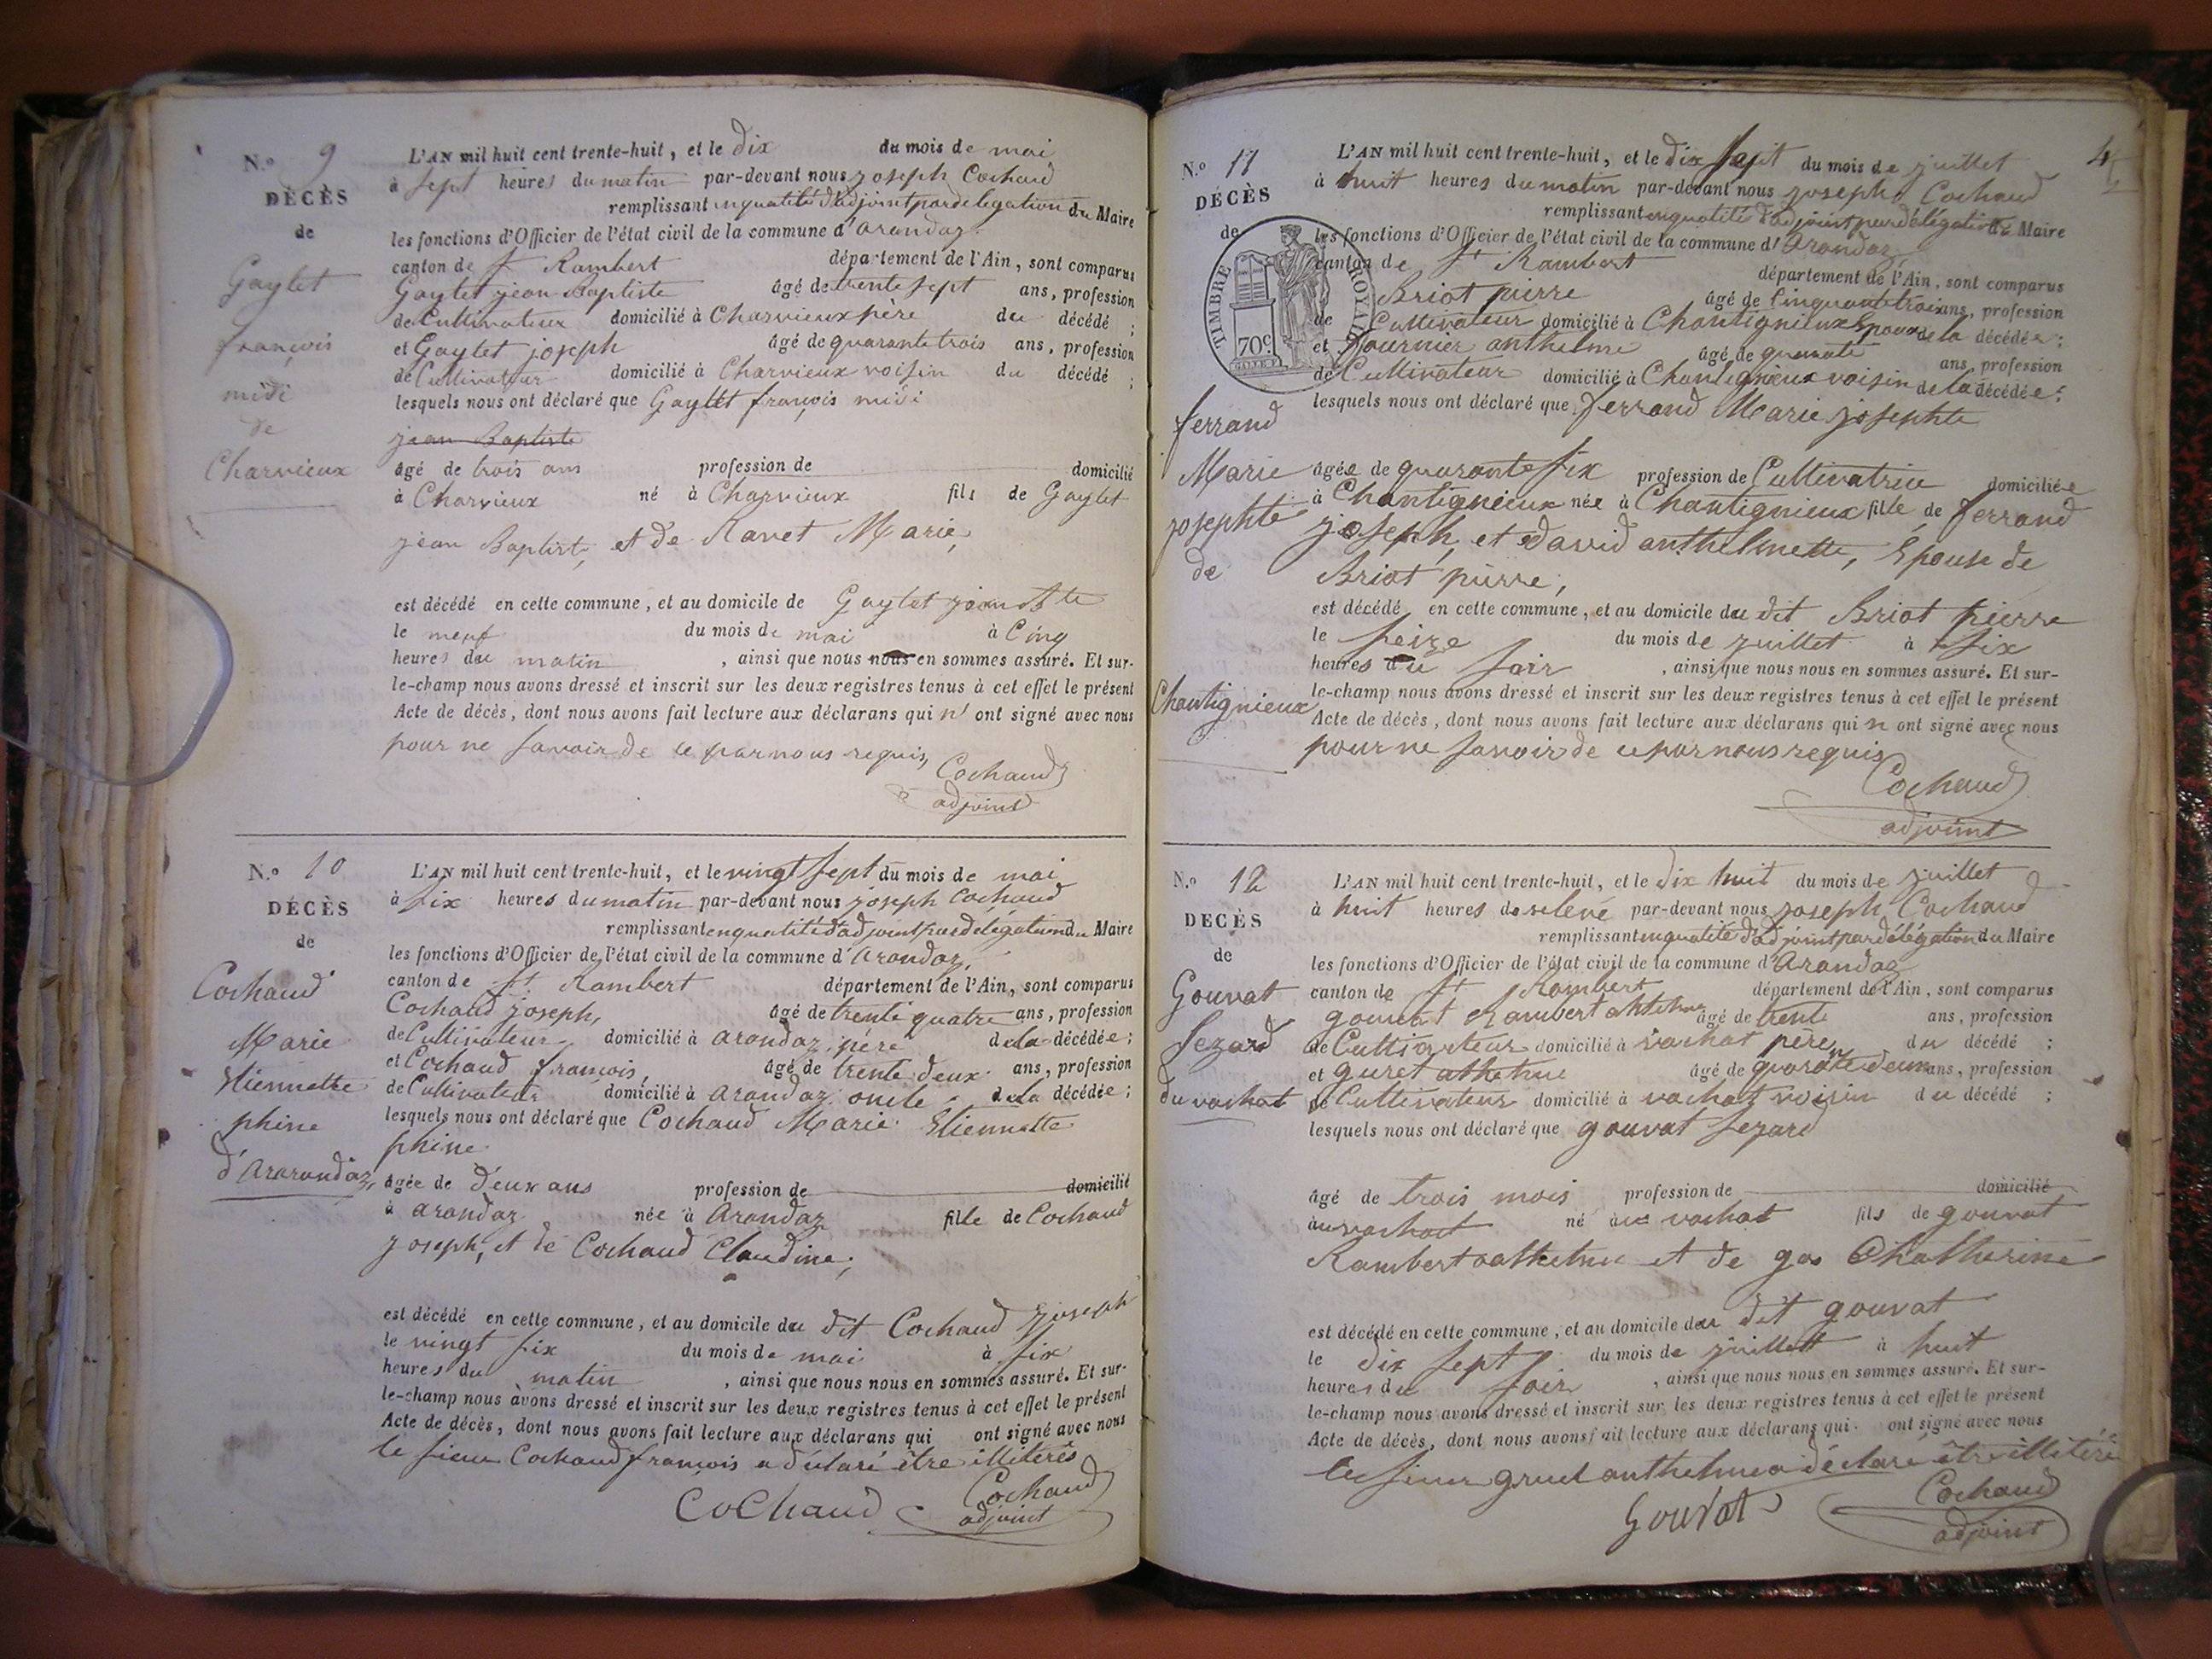 N.º 9
DÉCÈS
de
Gaylet
françois
midi
de
Charvieux
L'AN mil huit cent trente-huit, et le dix du mois de mai
à sept heures du matin par-devant nous joseph Cochaud
remplissant enqualité d'adjoint par délégation du Maire
les fonctions d'Officier de l'état civil de la commune d'arandaz
canton de St Rambert département de l'Ain, sont comparus
Gaylet jean Baptiste âgé de trente sept ans, profession
de Cultivateur domicilié à Charvieux père du décédé ;
et Gaylet joseph âgé de quarante trois ans, profession
de Cultivateur domicilié à Charvieux voisin du décédé ;
lesquels nous ont déclaré que Gaylet françois midi
jean Baptiste
âgé de trois ans profession de domicilié
à Charvieux né à Charvieux fils de Gaylet
jean Baptiste, et de Ravet Marie,
est décédé en cette commune, et au domicile de Gaylet jean Bte
le neuf du mois de mai à Cinq
heures du matin , ainsi que nous nous en sommes assuré. Et sur-
le-champ nous avons dressé et inscrit sur les deux registres tenus à cet effet le présent
Acte de décès, dont nous avons fait lecture aux déclarans qui n' ont signé avec nous
pour ne savoir de ce par nous requis,
Cochaud
adjoint
N.º 10
DÉCÈS
de
Cochaud
Marie
Etiennette
phine
d'Ararandaz,
L'AN mil huit cent trente-huit, et le vingt sept du mois de mai
à six heures du matin par-devant nous joseph Cochaud
remplissant enqualité d'adjoint par délégation du Maire
les fonctions d'Officier de l'état civil de la commune d'arandaz,
canton de St Rambert département de l'Ain, sont comparus
Cochaud joseph, âgé de trente quatre ans, profession
de Cultivateur domicilié à arandaz, père de la décédée ;
et Cochaud françois, âgé de trente deux ans, profession
de Cultivateur domicilié à arandaz oncle de la décédée ;
lesquels nous ont déclaré que Cochaud Marie Etiennette
phine
âgée de deux ans profession de domicilié
à arandaz née à Arandaz fille de Cochaud
joseph, et de Cochaud Claudine,
est décédé en cette commune, et au domicile du dit Cochaud joseph
le vingt six du mois de mai à six
heures du matin , ainsi que nous nous en sommes assuré. Et sur-
le-champ nous avons dressé et inscrit sur les deux registres tenus à cet effet le présent
Acte de décès, dont nous avons fait lecture aux déclarans qui ont signé avec nous
le sieur Cochaud françois a déclaré être illiterés
Cochaud
Cochaud
adjoint
4
N.º 11
DÉCÈS
de
TIMBRE ROYAL
70c
ferrand
Marie
josephte
de
Chantignieux
L'AN mil huit cent trente-huit, et le dix sept du mois de juillet
à huit heures du matin par-devant nous joseph Cochaud
remplissant enqualité d'adjoint par délégation du Maire
les fonctions d'Officier de l'état civil de la commune d'Arandaz
canton de St Rambert département de l'Ain, sont comparus
Briot pierre âgé de Cinquante trois ans, profession
de Cultivateur domicilié à Chantignieux Epoux de la décédée ;
et fournier anthelme âgé de quarante ans, profession
de Cultivateur domicilié à Chantignieux voisin de la décédée ;
lesquels nous ont déclaré que ferrand Marie josephte
âgée de quarante six profession de Cultivatrice domiciliée
à Chantignieux née à Chantignieux fille de ferrand
joseph, et david anthelmette, Epouse de
Briot pierre,
est décédé en cette commune, et au domicile du dit Briot pierre
le seize du mois de juillet à six
heures du soir , ainsi que nous nous en sommes assuré. Et sur-
le-champ nous avons dressé et inscrit sur les deux registres tenus à cet effet le présent
Acte de décès, dont nous avons fait lecture aux déclarans qui n ont signé avec nous
pour ne savoir de ce par nous requis
Cochaud
adjoint
N.º 12
DECÈS
de
Gouvat
Sezard
du vachat
L'AN mil huit cent trente-huit, et le dix huit du mois de juillet
à huit heures de relevé par-devant nous joseph Cochaud
remplissant enqualité d'adjoint par délégation du Maire
les fonctions d'Officier de l'état civil de la commune d'Arandaz
canton de St Rambert département de l'Ain, sont comparus
gouvat Rambert âgé de trente ans, profession
de Cultivateur domicilié à vachat père, du décédé ;
et âgé de quarante deux ans, profession
de Cultivateur domicilié à vachat voisin du décédé ;
lesquels nous ont déclaré que gouvat sezard
âgé de trois mois profession de domicilié
au vachat né au vachat fils de gouvat
Rambert et de gos Chatherine
est décédé en cette commune, et au domicile du dit gouvat
le dix sept du mois de juillett à huit
heures du soir , ainsi que nous nous en sommes assuré. Et sur-
le-champ nous avons dressé et inscrit sur les deux registres tenus à cet effet le présent
Acte de décès, dont nous avons fait lecture aux déclarans qui ont signé avec nous
le sieur anthelme a déclaré être illitéré
Gouvat
Cochaud
adjoint